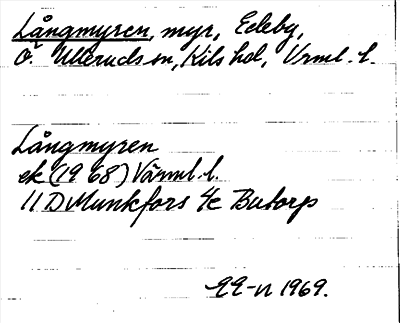 Långmyren, myr, Edeby,
Ö. Ulleruds sn, Kils hd, Vrml. l.
Långmyren
ek (1968) Värml. l.
11D Munkfors 4c Butorp
1969.